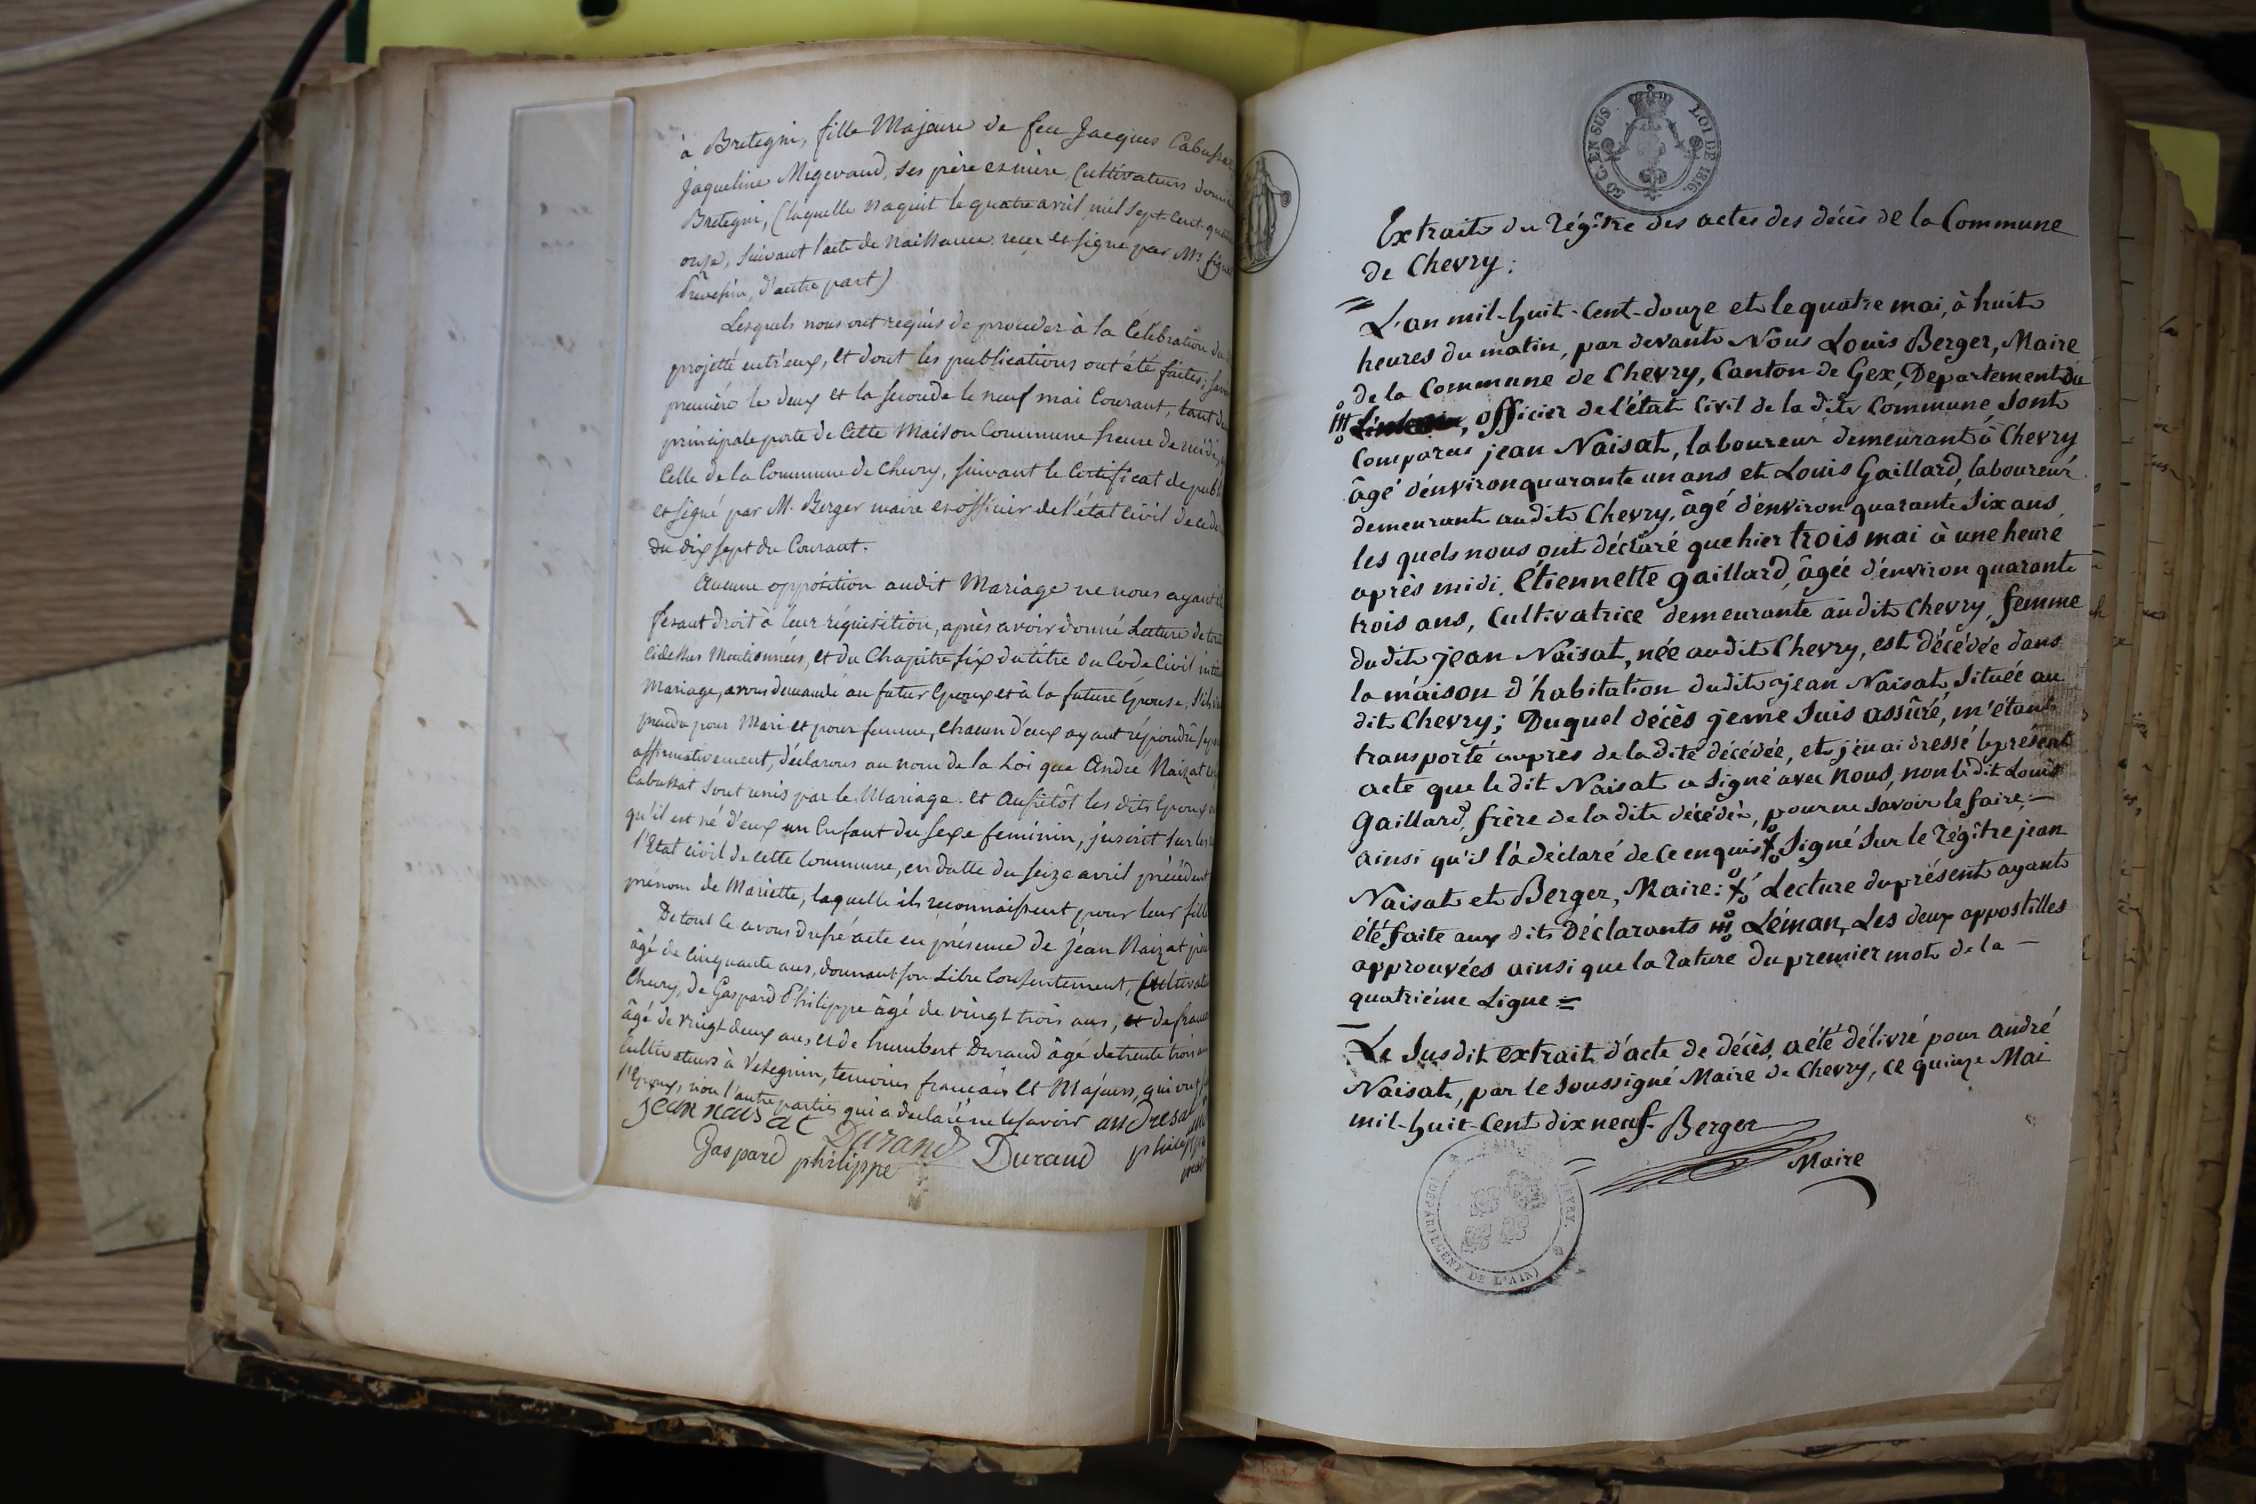 à Bretegni, fille Majeure de feu Jacques
Jaqueline Megevand, ses père et mère, Cultivateurs
Bretegni, (laquelle naquit le quatre avril mil sept cent
onze, suivant l'acte de naissance reçu et signé par Mr.
d'autre part)
Lesquels nous ont requis de procéder à la Célébration du
projetté entr'eux, et dont les publications ont été faites;
première le deux et la seconde le neuf mai Courant,
principale porte de Cette Maison Commune heure de midi,
Celle de la Commune de Chevry, suivant le Certificat de
et signé par M. Berger maire et officier de l'état civil de
du dix sept du Courant.
Aucune opposition audit Mariage ne nous ayant
fesant droit à leur réquisition, après avoir donné Lecture de
cidessus Mentionnées, et du Chapitre six du titre du Code Civil
Mariage, avons demandé au futur Epoux et à la future Epouse,
prendre pour Mari et pour femme, chacun d'eux ayant répondu
affirmativement, déclarons au nom de la Loi que André Naizat
Cabussat sont unis par le Mariage. et Ausitôt les dits Epoux
qu'il est né d'eux un Enfant du sexe feminin, inscrit sur les
l'Etat civil de cette Commune, en datte du seize avril précédent
prénom de Mariette, laquelle ils reconnaissent pour leur fille
De tout ce avons dressé acte en présence de Jean Naizat
âgé de Cinquante ans, donnant son Libre Consentement,
Chevry, de Gaspard Philippe âgé de vingt trois ans, et de
âgé de vingt deux ans, et de humbert Durand âgé de trente trois
Cultivateurs à Vesegnin, temoins francais et Majeurs, qui ont
l'Epoux, non l'autre partie qui a declaré ne le savoir
jean naisat
Durand
Durand
Gaspard philippe
50 C. EN SUS
LOI DE 1816.
Extrait du régitre des actes des décès de la Commune
de Chevry:
L'an mil-huit-Cent-douze et le quatre mai, à huit
heures du matin, par devant Nous Louis Berger, Maire
de la Commune de Chevry, Canton de Gex, Departement du
officier de l'état Civil de la dite Commune sont
Comparus jean Naisat, laboureur demeurant à Chevry
âgé d'environ quarante un ans et Louis Gaillard, laboureur
demeurant audit Chevry, âgé d'environ quarante six ans
les quels nous ont déclaré que hier trois mai à une heure
après midi, Etiennette gaillard, âgée d'environ quarante
trois ans, Cultivatrice demeurante audit Chevry, femme
dudit jean Naisat, née audit Chevry, est décédée dans
la maison d'habitation dudit jean Naisat située au
dit Chevry; Duquel décès je me suis assûré, m'étant
transporté auprès de la dite décédée, et j'en ai dressé le présent
acte que le dit Naisat a signé avec nous, non le dit Louis
Gaillard, frère de la dite décédée, pour ne savoir le faire,—
ainsi qu'il l'a déclaré de ce enquis Signé sur le régitre jean
Naisat et Berger, Maire: Lecture du présent ayant
été faite aux dits Déclarants Léman, Les deux appostilles
approuvées ainsi que la rature du premier mot de la —
quatrième Ligne =
Le susdit extrait d'acte de décès, a été délivré pour andré
Naisat, par le soussigné Maire de Chevry, ce quinze Mai
mil-huit-Cent dix neuf. Berger
Maire
DE L'AIN)